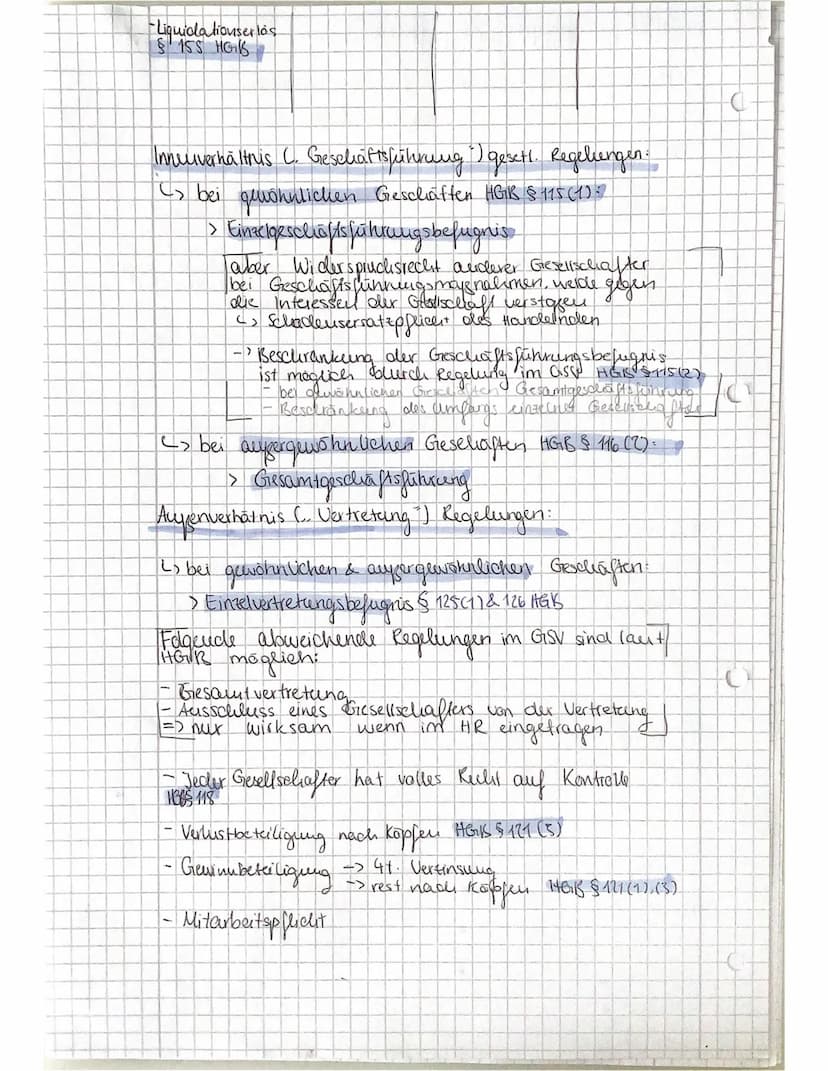 -Liquidationserlös
§ 155 HGB
Innenverhältnis („Geschäftsführung") gesetl. Regelungen:
↳ bei gewöhnlichen Geschäften HGB § 115(1):
> Einzelgeschäftsführungsbefugnis
aber Widerspruchsrecht anderer Gesellschafter
bei Geschäftsführungsmaßnahmen, welche gegen
die Interessen der Gesellschaft verstoßen
↳ Schadensersatzpflicht des Handelnden
-> Beschränkung der Geschäftsführungsbefugnis
ist möglich durch Regelung im GSV HGB § 115(2)
- bei gewöhnlichen Geschäften Gesamtgeschäftsführung
- Beschränkung des Umfangs einzelner Gesellschafter
↳ bei außergewöhnlichen Geschäften HGB § 116(2):
> Gesamtgeschäftsführung
Außenverhätnis („Vertretung") Regelungen:
↳ bei gewöhnlichen & außergewöhnlichen Geschäften:
> Einzelvertretungsbefugnis § 125(1) & 126 HGB
Folgende abweichende Regelungen im GSV sind laut
HGB möglich:
- Gesamtvertretung
- Ausschluss eines Gesellschafters von der Vertretung
=> nur wirksam wenn im HR eingetragen
- Jeder Gesellschafter hat volles Recht auf Kontrolle
HGB§ 118
- Verlustbeteiligung nach Köpfen HGB § 121 (3)
- Gewinnbeteiligung -> 4%. Verzinsung
-> rest nach Köpfen HGB § 121(1),(3)
- Mitarbeitspflicht